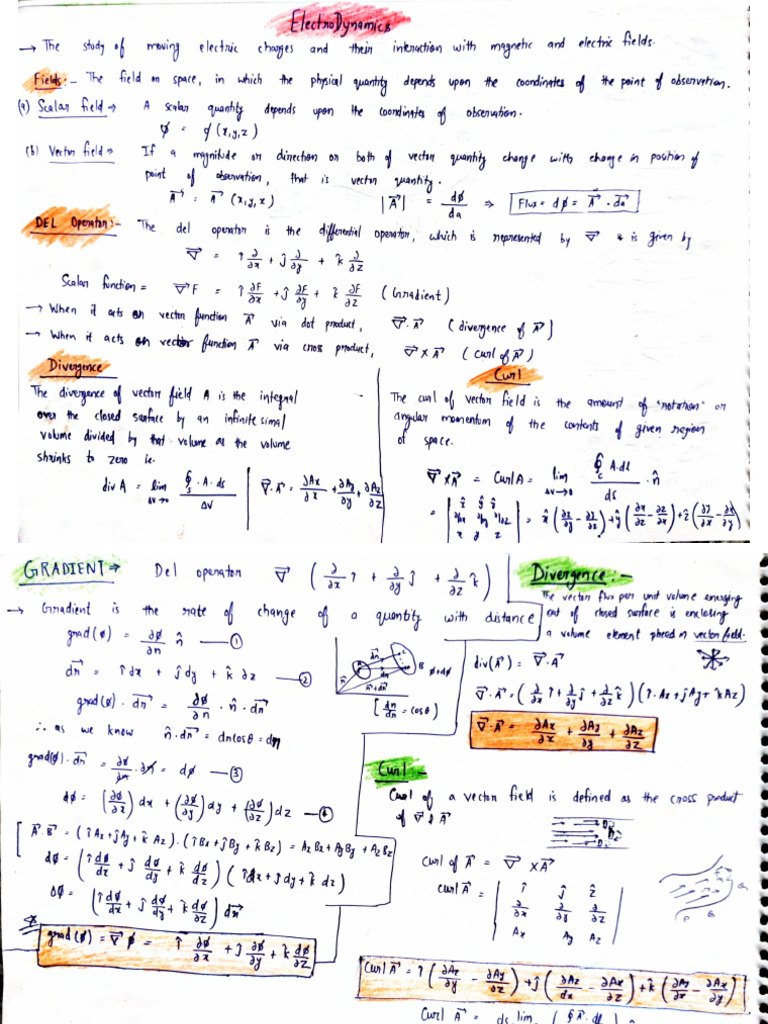 ElectroDynamics
→ The study of moving electric charges and their interaction with magnetic and electric fields.
Fields:- The field or space, in which the physical quantity depends upon the coordinates of the point of observation.
(a) Scalar field → A scalar quantity depends upon the coordinates of observation.
φ = φ(x,y,z)
(b) Vector field → If a magnitude or direction or both of vector quantity change with change in position of
point of observation, that is vector quantity.
A⃗ = A⃗ (x,y,z) |A⃗| = dφ/da ⇒ Flux = dφ = A⃗ · da⃗
DEL Operator:- The del operator is the differential operator, which is represented by ∇⃗ & is given by
∇⃗ = î ∂/∂x + ĵ ∂/∂y + k̂ ∂/∂z
Scalar function = ∇⃗F = î ∂F/∂x + ĵ ∂F/∂y + k̂ ∂F/∂z (Gradient)
→ When it acts on vector function A⃗ via dot product, ∇⃗·A⃗ (divergence of A⃗)
→ When it acts on vector function A⃗ via cross product, ∇⃗×A⃗ (curl of A⃗)
Divergence
The divergence of vector field A is the integral
over the closed surface by an infinite simal
volume divided by that volume as the volume
shrinks to zero ie.
div A = lim Δv→0 ∮s · A · ds / Δv | ∇⃗·A⃗ = ∂Ax/∂x + ∂Ay/∂y + ∂Az/∂z
Curl
The curl of vector field is the amount of "rotation" or
angular momentum of the contents of given region
of space.
∇⃗×A⃗ = Curl A = lim Δv→0 ∮c A·dl / ds · n̂
= | x̂ ŷ ẑ |
| ∂/∂x ∂/∂y ∂/∂z |
| x y z |
= x̂ (∂z/∂y − ∂y/∂z) + ŷ (∂x/∂z − ∂z/∂x) + ẑ (∂y/∂x − ∂x/∂y)
GRADIENT ⇒ Del operator ∇⃗ (∂/∂x î + ∂/∂y ĵ + ∂/∂z k̂)
→ Gradient is the rate of change of a quantity with distance
grad(φ) = ∂φ/∂n n̂ —①
dr⃗ = î dx + ĵ dy + k̂ dz —②
grad(φ) · dr⃗ = ∂φ/∂n · n̂ · dr⃗
[dn/dr = cosθ]
φ+dφ
∴ as we know n̂·dr⃗ = dr cosθ = dn
grad(φ)·dr⃗ = ∂φ/∂n · ∂n = dφ —③
dφ = (∂φ/∂x) dx + (∂φ/∂y) dy + (∂φ/∂z) dz —④
[A⃗·B⃗ = (î Ax + ĵ Ay + k̂ Az)·(î Bx + ĵ By + k̂ Bz) = AxBx + AyBy + AzBz
dφ = (î dφ/dx + ĵ dφ/dy + k̂ dφ/dz) (î dx + ĵ dy + k̂ dz)
dφ = (î dφ/dx + ĵ dφ/dy + k̂ dφ/dz) dr⃗
grad(φ) = ∇⃗φ = î ∂φ/∂x + ĵ ∂φ/∂y + k̂ ∂φ/∂z
Divergence:-
The vector flux per unit volume emerging
out of closed surface is enclosing
a volume element placed in vector field.
div(A⃗) = ∇⃗·A⃗
∇⃗·A⃗ = (∂/∂x î + ∂/∂y ĵ + ∂/∂z k̂) (î Ax + ĵ Ay + k̂ Az)
∇⃗·A⃗ = ∂Ax/∂x + ∂Ay/∂y + ∂Az/∂z
Curl -
Curl of a vector field is defined as the cross product
of ∇⃗ & A⃗
curl of A⃗ = ∇⃗ × A⃗
curl A⃗ = | î ĵ ẑ |
| ∂/∂x ∂/∂y ∂/∂z |
| Ax Ay Az |
Curl A⃗ = î (∂Az/∂y − ∂Ay/∂z) + ĵ (∂Az/dx − ∂Ax/∂z) + k̂ (∂Ay/∂x − ∂Ax/∂y)